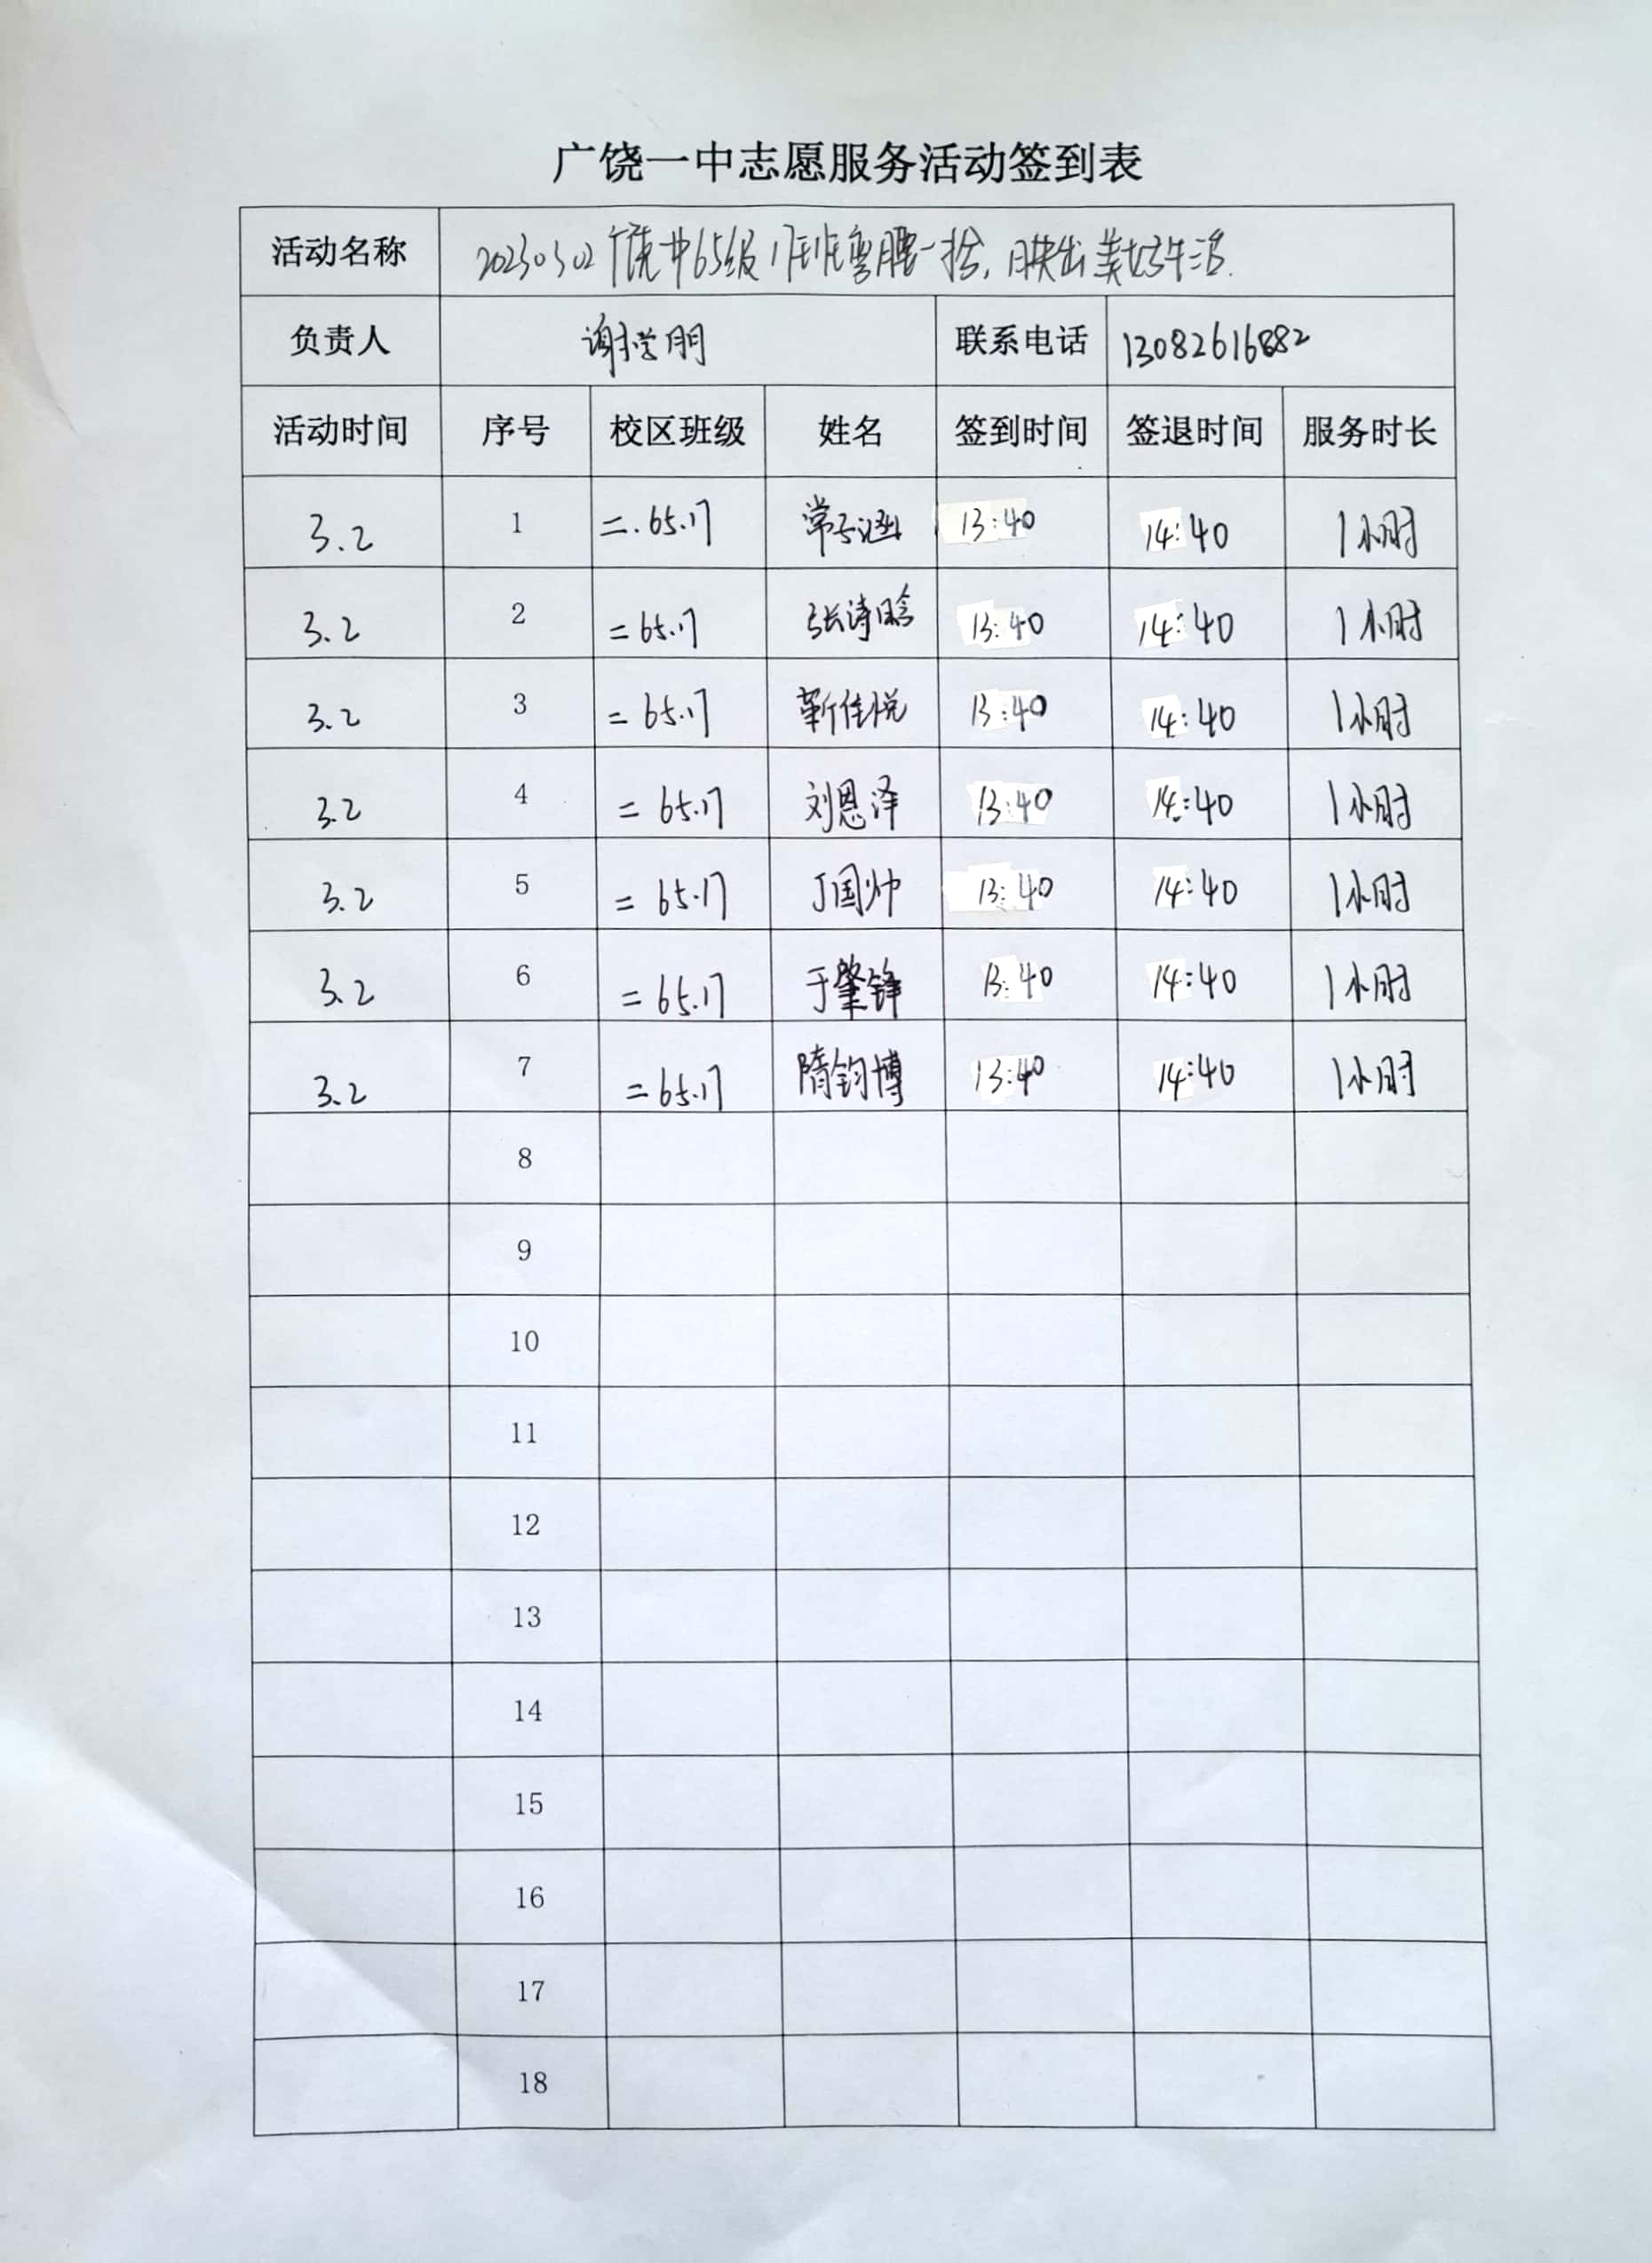 广饶一中志愿服务活动签到表
活动名称 20230302广饶一中65级17班弯腰一拾,映出美好生活.
负责人 谢学朋 联系电话 13082616882
活动时间 序号 校区班级 姓名 签到时间 签退时间 服务时长
3.2 1 二.65.17 常子涵 13:40 14:40 1小时
3.2 2 二65.17 张诗晗 13:40 14:40 1小时
3.2 3 二65.17 靳佳悦 13:40 14:40 1小时
3.2 4 二65.17 刘恩泽 13:40 14:40 1小时
3.2 5 二65.17 丁国帅 13:40 14:40 1小时
3.2 6 二65.17 于肇锋 13:40 14:40 1小时
3.2 7 二65.17 隋钧博 13:40 14:40 1小时
8
9
10
11
12
13
14
15
16
17
18